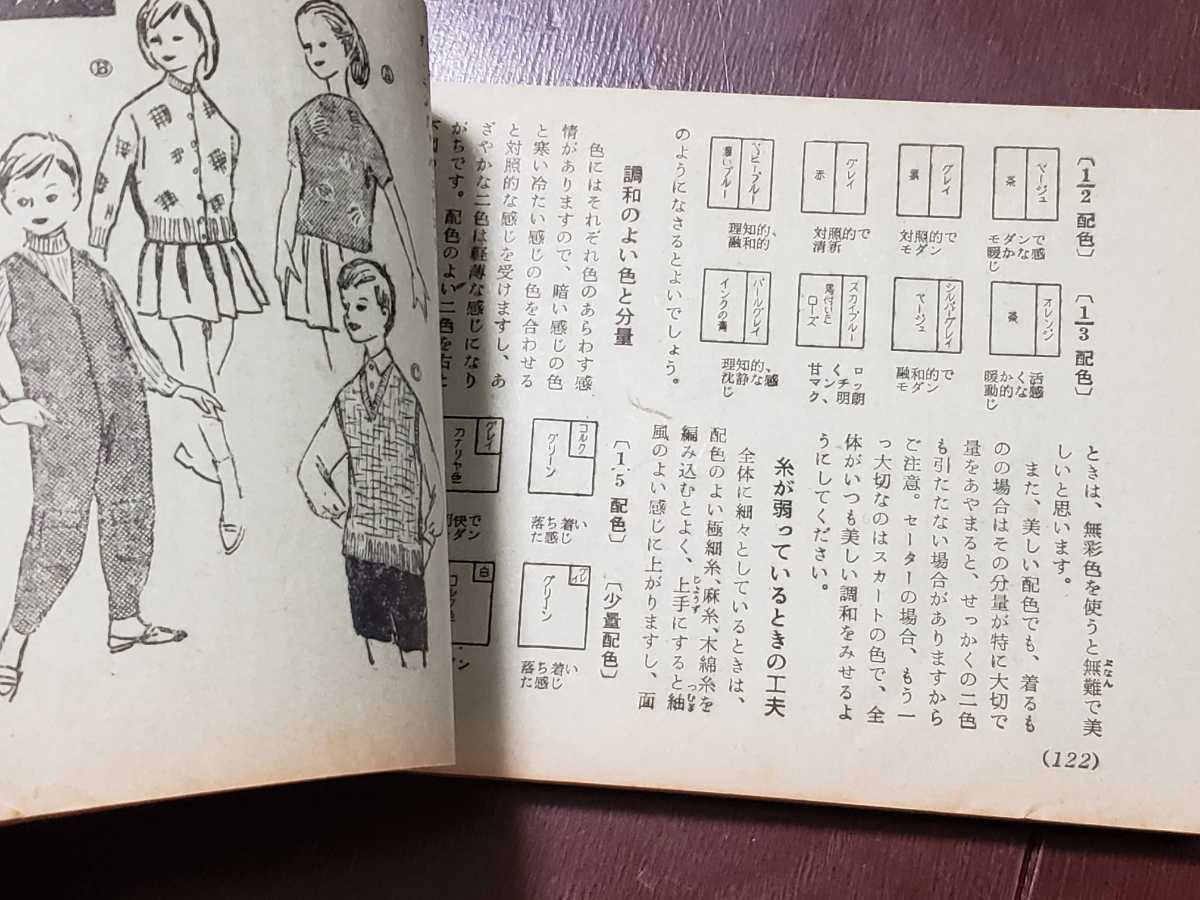 (122)
〔1/2 配色〕
ベージュ
茶
モダンで
暖かな感
じ
グレイ
黒
対照的で
モダン
グレイ
赤
対照的で
清新
ベビーブルー
濃いブルー
理知的、
融和的
〔1/3 配色〕
オレンジ
茶
暖かく活
動的な感
じ
シルバーグレイ
ベージュ
融和的で
モダン
スカイブルー
ローズ
甘くロッ
マンチッ
ク、明朗
パールグレイ
インクの青
理知的、
沈静な感
じ
のようになさるとよいでしょう。
調和のよい色と分量
色にはそれぞれ色のあらわす感
情がありますので、暗い感じの色
と寒い冷たい感じの色を合わせる
と対照的な感じを受けますし、あ
ざやかな二色は軽薄な感じになり
がちです。配色のよい二色を右に
ときは、無彩色を使うと無難で美
ぶなん
しいと思います。
また、美しい配色でも、着るも
のの場合はその分量が特に大切で
量をあやまると、せっかくの二色
も引たたない場合がありますから
ご注意。セーターの場合、もう一
つ大切なのはスカートの色で、全
体がいつも美しい調和をみせるよ
うにしてください。
糸が弱っているときの工夫
全体に細々としているときは、
配色のよい極細糸、麻糸、木綿糸を
編み込むとよく、上手にすると紬
じょうず
つむぎ
風のよい感じに上がりますし、面
〔1/5 配色〕
コルク
グリーン
落ち着い
た感じ
グレイ
カナリヤ色
〔少量配色〕
グレイ
グリーン
落ち着い
た感じ
白
Ⓑ
Ⓐ
Ⓒ